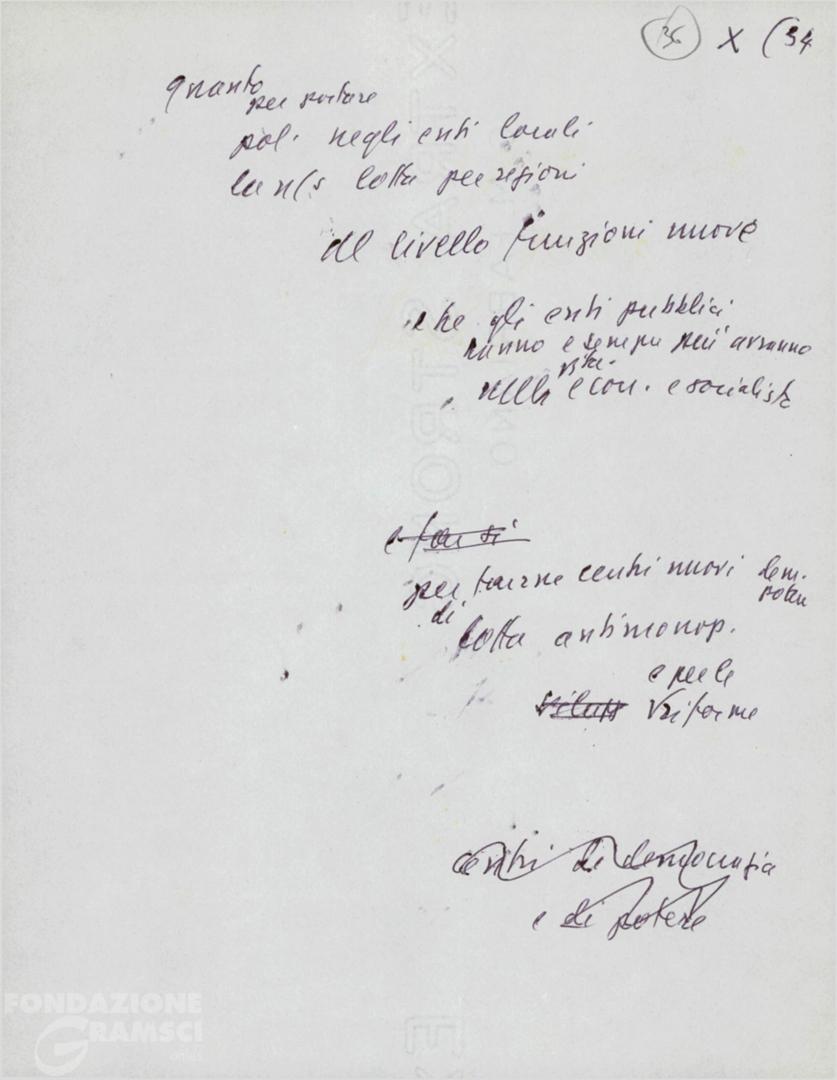 36 X (34
quanto
per portare
pol. negli enti locali
la n/s lotta per regioni
al livello funzioni nuove
che gli enti pubblici
hanno e sempre più avranno
nella vita econ. e socialista
e far sì
per farne centri nuovi dem.
poten
di
lotta antimonop.
e per le
svilupp riforme
centri di democrazia
e di potere
FONDAZIONE
GRAMSCI